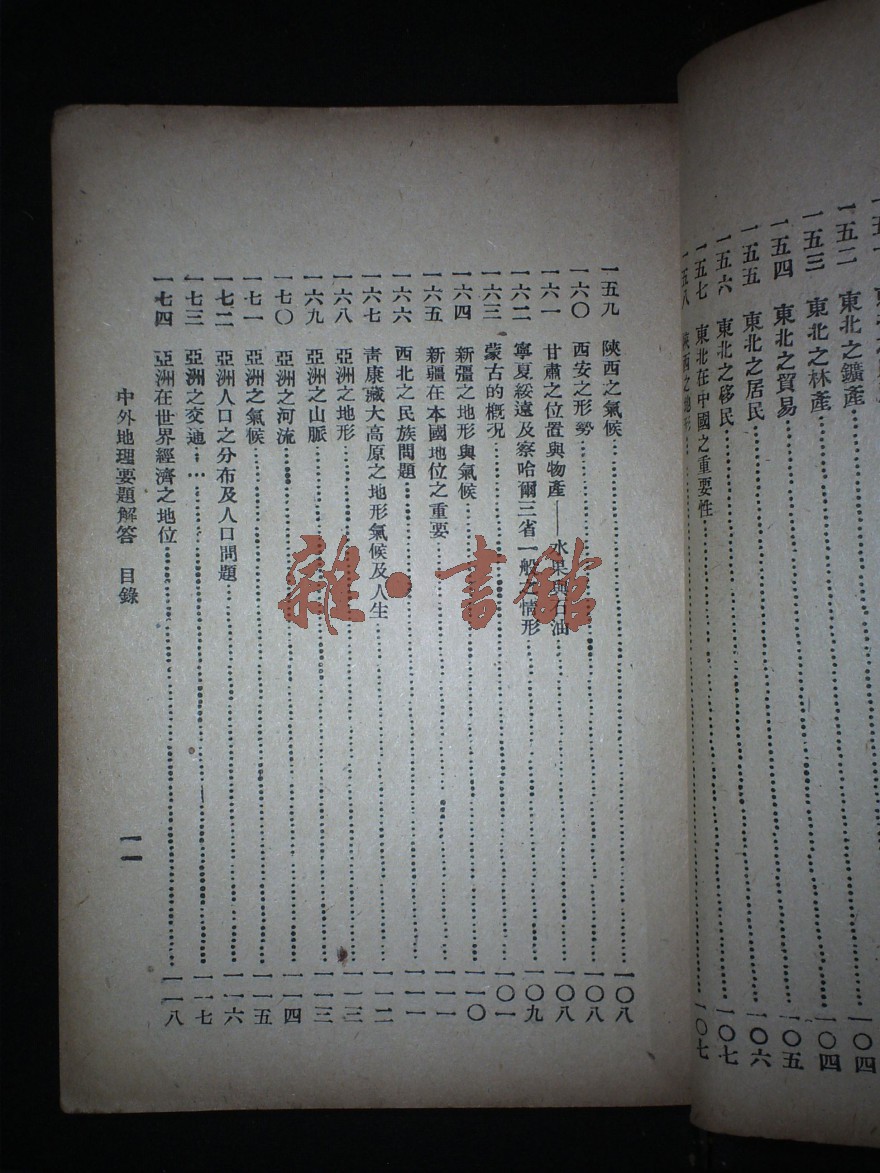 一五二 東北之鑛產 一〇四
一五三 東北之林產 一〇四
一五四 東北之貿易 一〇五
一五五 東北之居民 一〇六
一五六 東北之移民 一〇七
一五七 東北在中國之重要性 一〇七
一五八 陝西之地形
一五九 陝西之氣候 一〇八
一六〇 西安之形勢 一〇八
一六一 甘肅之位置與物產——水果與石油 一〇八
一六二 寧夏綏遠及察哈爾三省一般之情形 一〇九
一六三 蒙古的概況 一〇一
一六四 新彊之地形與氣候 一一〇
一六五 新疆在本國地位之重要 一一一
一六六 西北之民族問題 一一一
一六七 青康藏大高原之地形氣候及人生 一一二
一六八 亞洲之地形 一一三
一六九 亞洲之山脈 一一三
一七〇 亞洲之河流 一一四
一七一 亞洲之氣候 一一五
一七二 亞洲人口之分布及人口問題 一一六
一七三 亞洲之交通 一一七
一七四 亞洲在世界經濟之地位 一一八
中外地理要題解答 目錄 一一
雜·書館